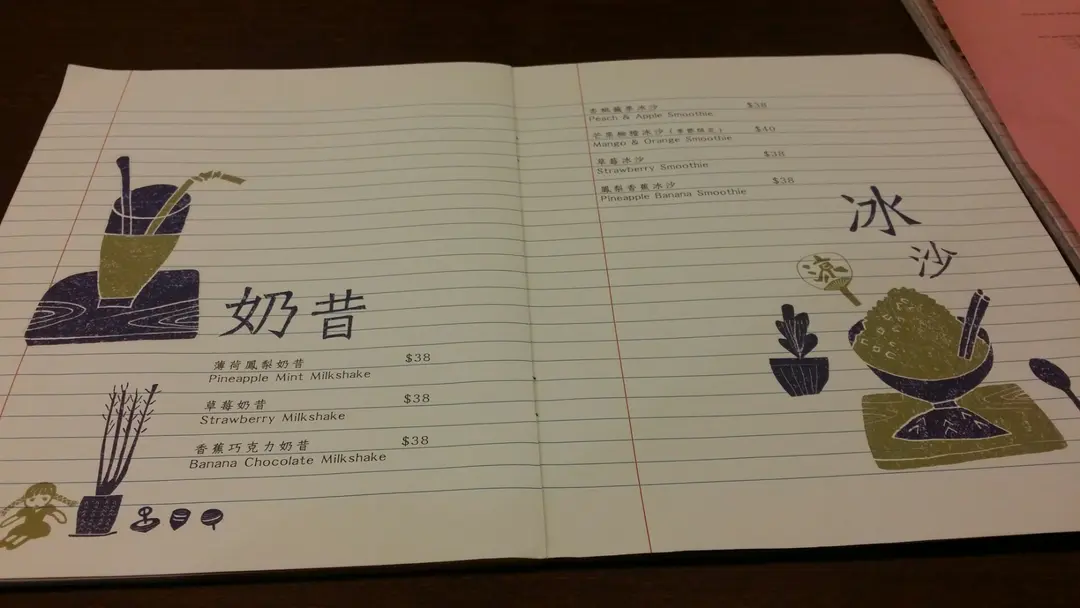 奶昔
薄荷鳳梨奶昔 $38
Pineapple Mint Milkshake
草莓奶昔 $38
Strawberry Milkshake
香蕉巧克力奶昔 $38
Banana Chocolate Milkshake
香桃蘋果冰沙 $38
Peach & Apple Smoothie
芒果柳橙冰沙 $40
Mango & Orange Smoothie
草莓冰沙 $38
Strawberry Smoothie
鳳梨香蕉冰沙 $38
Pineapple Banana Smoothie
冰
沙
涼